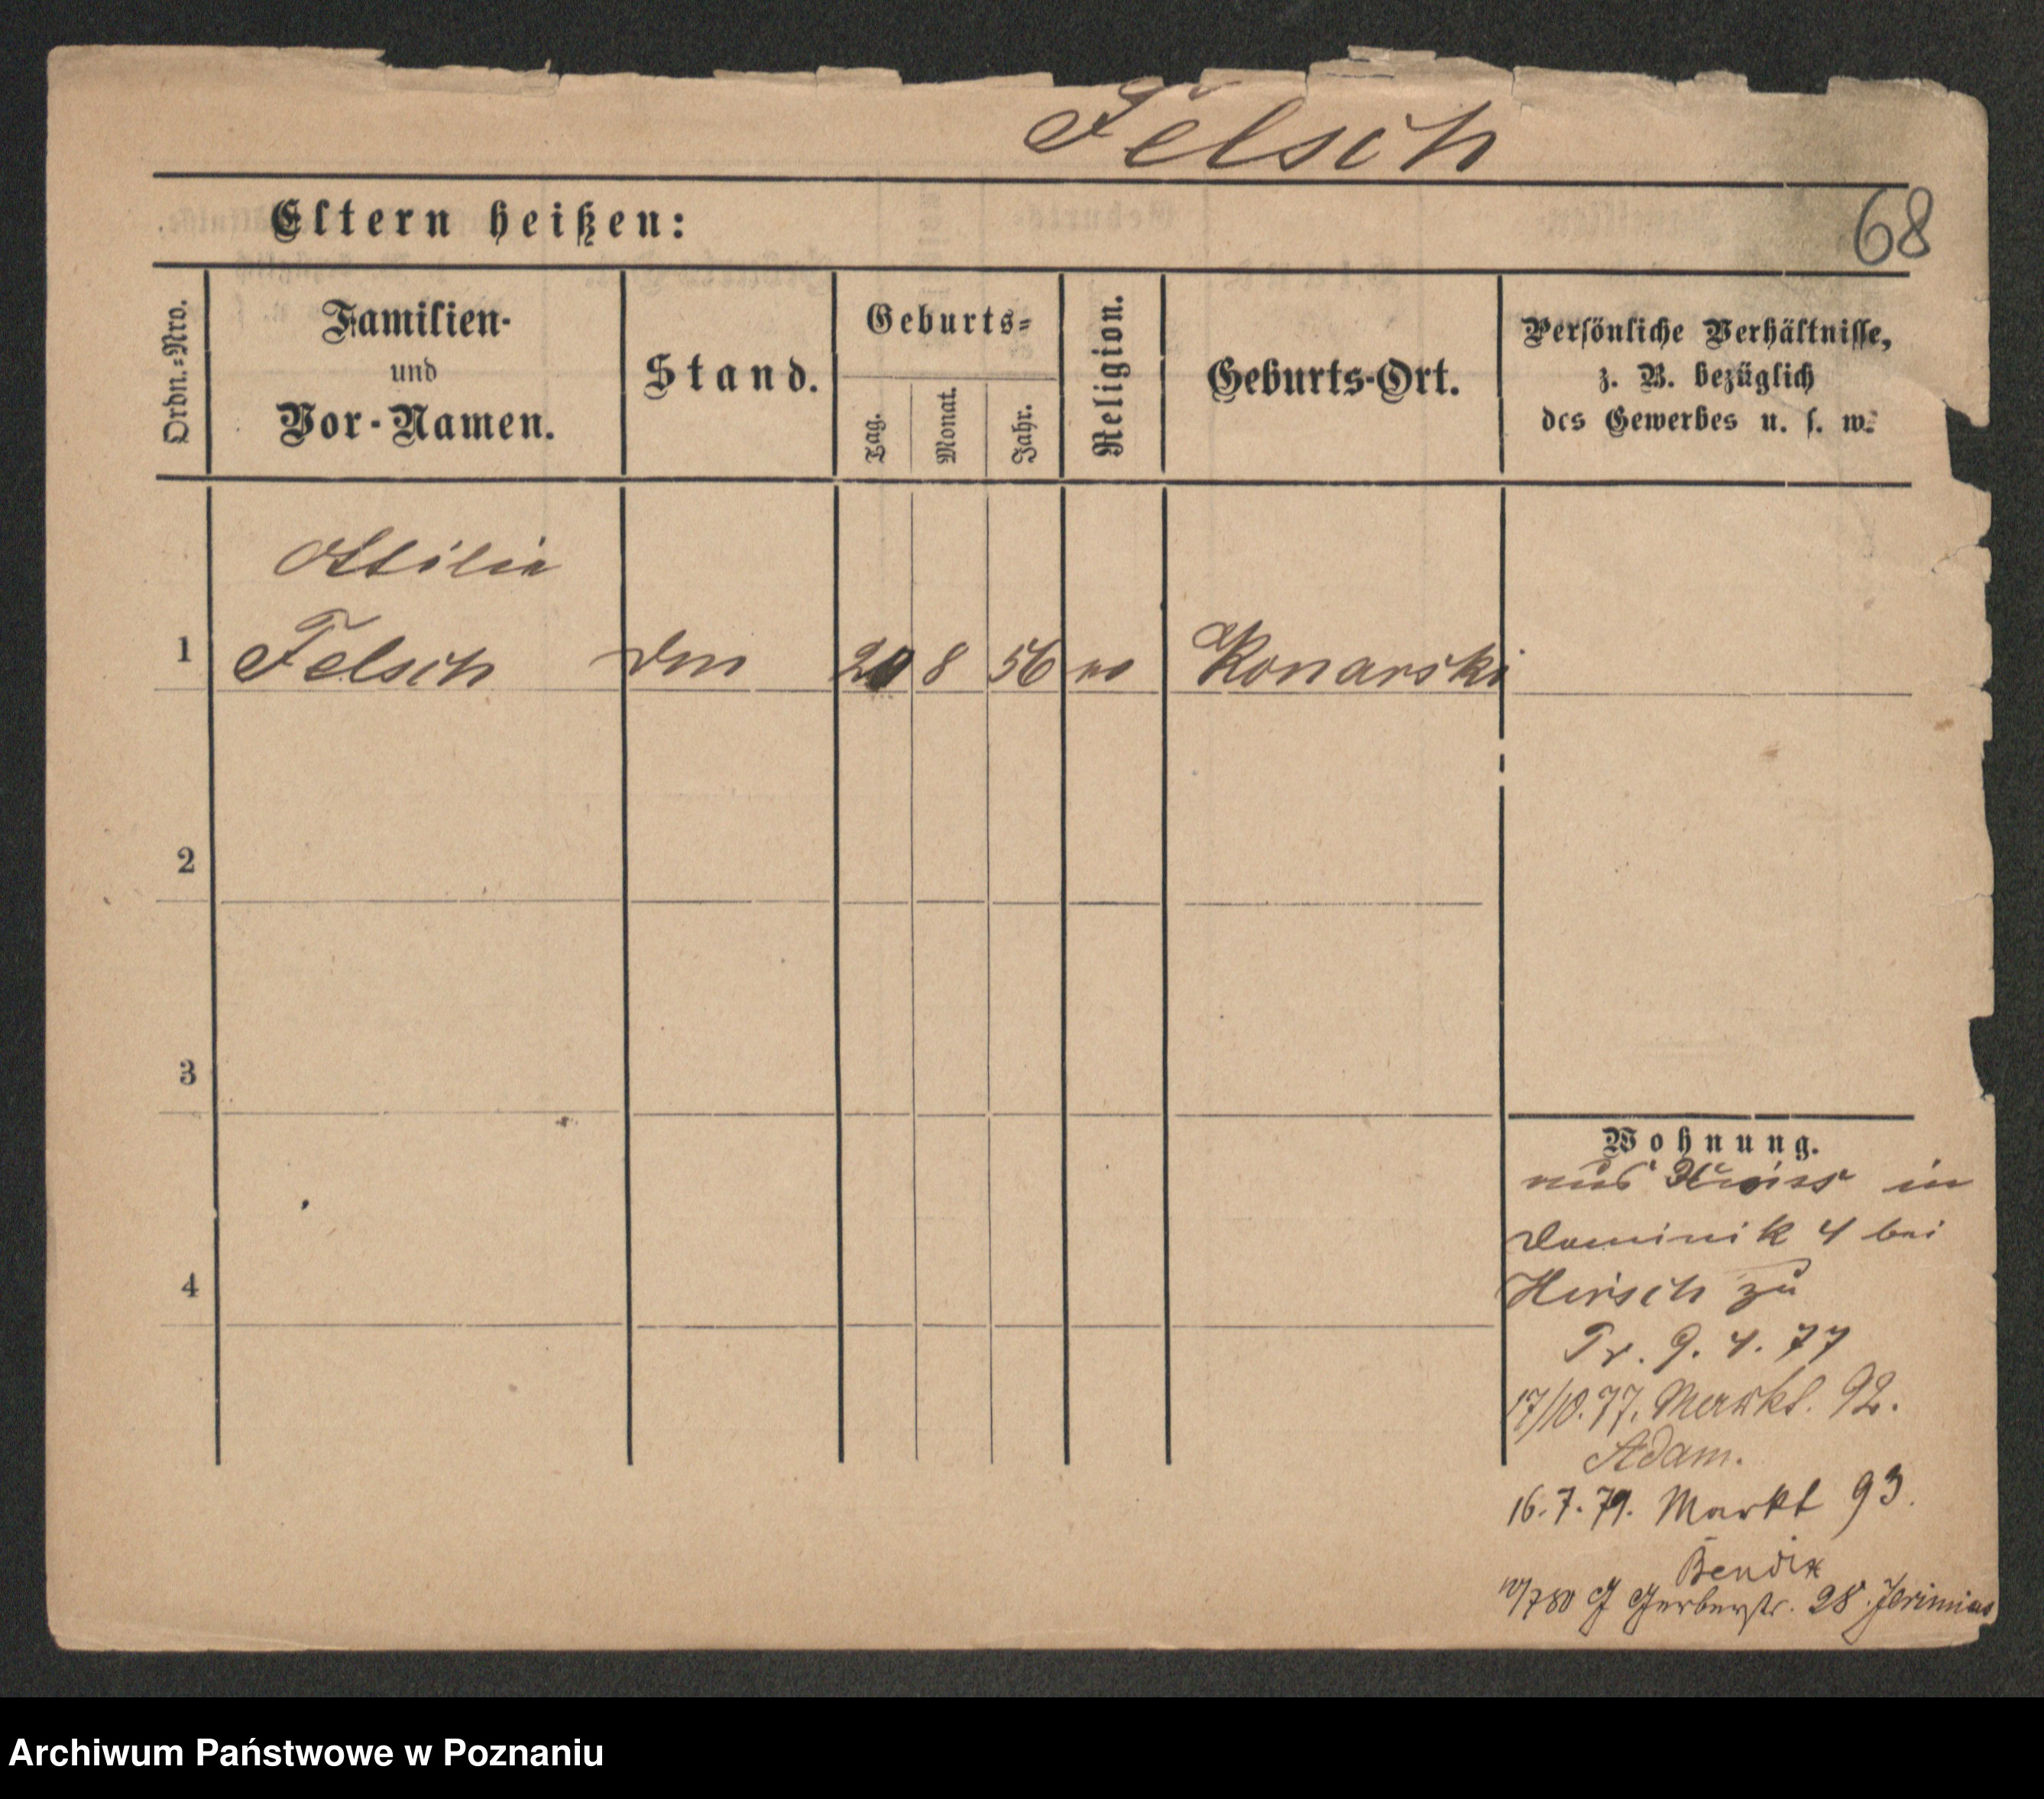 Felsch
68
Eltern heißen:
Ordn.-Nro.
Familien-
und
Vor-Namen.
Stand.
Geburts-
Tag.
Monat.
Jahr.
Religion.
Geburts-Ort.
Persönliche Verhältnisse,
z. B. bezüglich
des Gewerbes u. s. w.
Ottilie
1 Felsch 8 56 Konarski
2
3
4
Wohnung.
aus in
Dominik 4 bei
Hirsch zu
Pr. 9. 4. 77
17/10. 77. Markt. 92.
Adam.
16. 7. 79. Markt 93.
Bendix
Gerberstr. 28. Jerimias
Archiwum Państwowe w Poznaniu